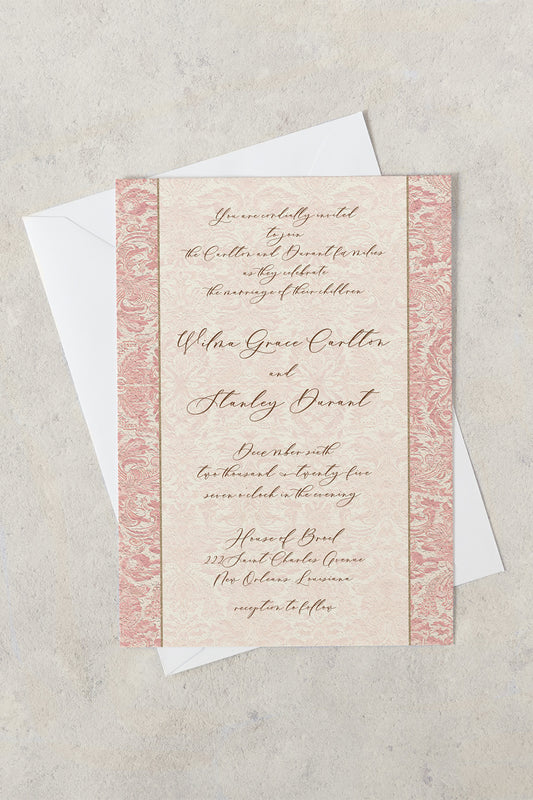 You are cordially invited
to join
the Carlton and Durant families
as they celebrate
the marriage of their children
Wilma Grace Carlton
and
Stanley Durant
December sixth
two thousand & twenty five
seven o'clock in the evening
House of Broel
222 Saint Charles Avenue
New Orleans, Louisiana
reception to follow